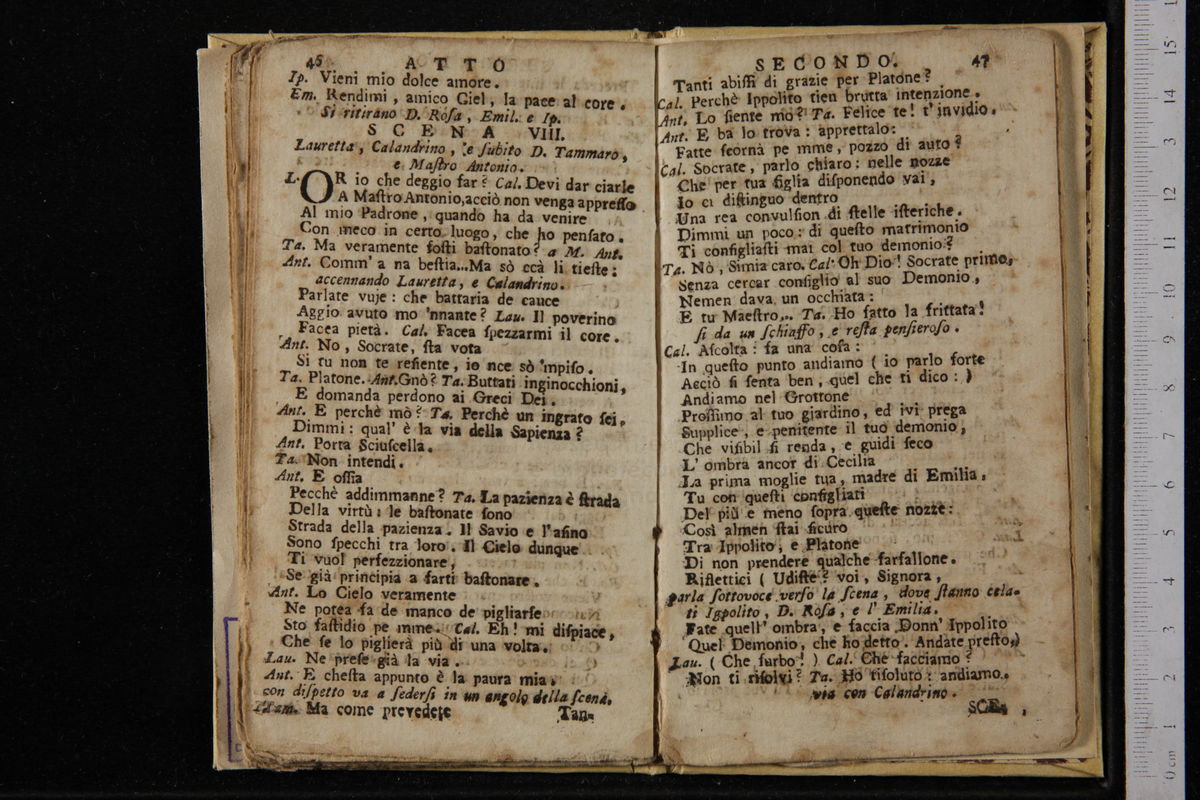 46 ATTO
Ip. Vieni mio dolce amore.
Em. Rendimi, amico Ciel, la pace al core.
Si ritirano D. Rosa, Emil. e Ip.
SCENA VIII.
Lauretta, Calandrino, e ſubito D. Tammaro,
e Maſtro Antonio.
L. OR io che deggio far? Cal. Devi dar ciarle
A Maſtro Antonio, acciò non venga appreſſo
Al mio Padrone, quando ha da venire
Con meco in certo luogo, che ho penſato.
Ta. Ma veramente foſti baſtonato? a M. Ant.
Ant. Comm' a na beſtia...Ma sò ccà li tieſte:
accennando Lauretta, e Calandrino.
Parlate vuje: che battaria de cauce
Aggio avuto mo 'nnante? Lau. Il poverino
Facea pietà. Cal. Facea ſpezzarmi il core.
Ant. No, Socrate, ſta vota
Si tu non te reſiente, io nce sò 'mpiſo.
Ta. Platone. Ant. Gnò? Ta. Buttati inginocchioni,
E domanda perdono ai Greci Dei.
Ant. E perchè mò? Ta. Perchè un ingrato ſei.
Dimmi: qual' è la via della Sapienza?
Ant. Porta Sciuſcella.
Ta. Non intendi.
Ant. E oſſia
Pecchè addimmanne? Ta. La pazienza è ſtrada
Della virtù: le baſtonate ſono
Strada della pazienza. Il Savio e l'aſino
Sono ſpecchi tra loro. Il Cielo dunque
Ti vuol perfezzionare,
Se già principia a farti baſtonare.
Ant. Lo Cielo veramente
Ne potea fa de manco de pigliarſe
Sto faſtidio pe mme. Cal. Eh! mi diſpiace,
Che ſe lo piglierà più di una volta.
Lau. Ne preſe già la via.
Ant. E cheſta appunto è la paura mia.
con diſpetto va a ſederſi in un angolo della ſcena.
Tam. Ma come prevedete
Tan-
SECONDO. 47
Tanti abiſſi di grazie per Platone?
Cal. Perchè Ippolito tien brutta intenzione.
Ant. Lo ſiente mo? Ta. Felice te! t'invidio.
Ant. E ba lo trova: apprettalo:
Fatte ſcornà pe mme, pozzo di auto?
Cal. Socrate, parlo chiaro: nelle nozze
Che per tua figlia diſponendo vai,
Io ci diſtinguo dentro
Una rea convulſion di ſtelle iſteriche.
Dimmi un poco: di queſto matrimonio
Ti configliaſti mai col tuo demonio?
Ta. Nò, Simia caro. Cal. Oh Dio! Socrate primo,
Senza cercar configlio al suo Demonio,
Nemen dava un occhiata:
E tu Maeſtro... Ta. Ho fatto la frittata!
ſi da un ſchiaffo, e reſta penſieroſo.
Cal. Aſcolta: fa una coſa:
In queſto punto andiamo ( io parlo forte
Acciò ſi ſenta ben, quel che ti dico: )
Andiamo nel Grottone
Proſſimo al tuo giardino, ed ivi prega
Supplice, e penitente il tuo demonio,
Che viſibil ſi renda, e guidi ſeco
L' ombra ancor di Cecilia
La prima moglie tua, madre di Emilia.
Tu con queſti configliati
Del più e meno ſopra queſte nozze:
Così almen ſtai ſicuro
Tra Ippolito, e Platone
Di non prendere qualche farfallone.
Riflettici ( Udiſte? voi, Signora,
parla ſottovoce verſo la ſcena, dove ſtanno cela-
ti Igpolito, D. Roſa, e l' Emilia.
Fate quell' ombra, e faccia Donn' Ippolito
Quel Demonio, che ho detto. Andate preſto,)
Lau. ( Che furbo! ) Cal. Che facciamo?
Non ti riſolvi? Ta. Ho riſoluto: andiamo.
via con Calandrino.
SCE-